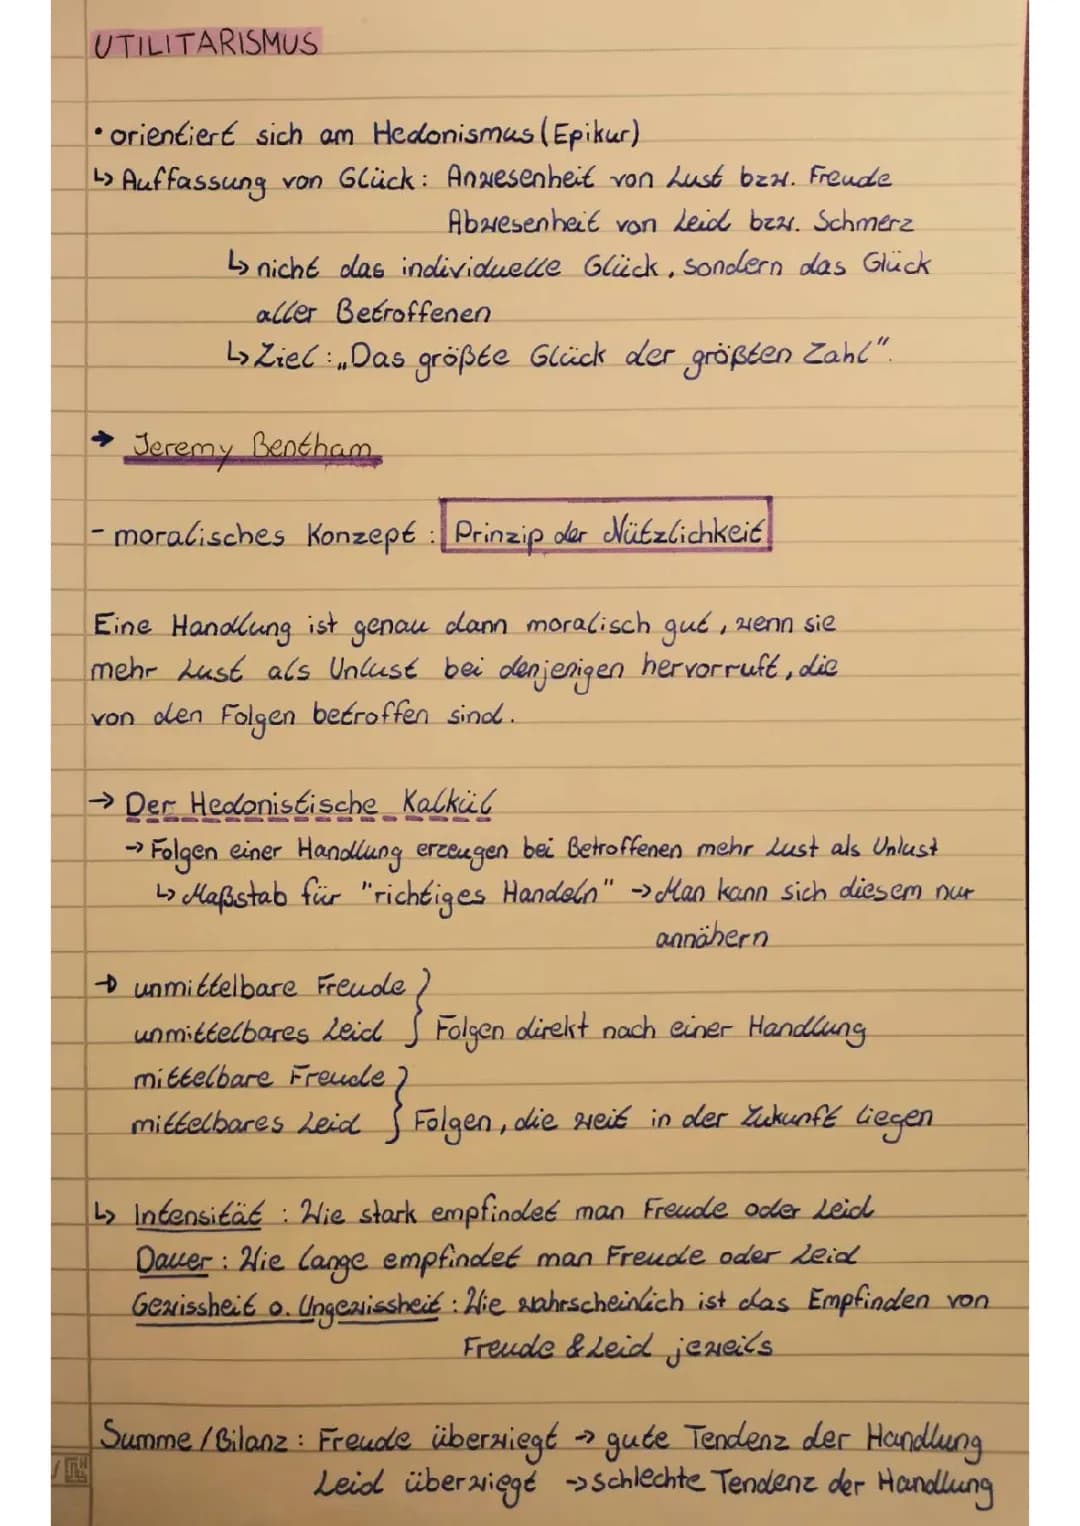 UTILITARISMUS
• orientiert sich am Hedonismus (Epikur)
↳ Auffassung von Glück: Anwesenheit von Lust bzw. Freude
Abwesenheit von Leid bzw. Schmerz
↳ nicht das individuelle Glück, sondern das Glück
aller Betroffenen
↳ Ziel: „Das größte Glück der größten Zahl".
→ Jeremy Bentham
- moralisches Konzept: Prinzip der Nützlichkeit
Eine Handlung ist genau dann moralisch gut, wenn sie
mehr Lust als Unlust bei denjenigen hervorruft, die
von den Folgen betroffen sind.
→ Der Hedonistische Kalkül
→ Folgen einer Handlung erzeugen bei Betroffenen mehr Lust als Unlust
↳ Maßstab für "richtiges Handeln" → Man kann sich diesem nur
annähern
→ unmittelbare Freude }
unmittelbares Leid } Folgen direkt nach einer Handlung
mittelbare Freude }
mittelbares Leid } Folgen, die weit in der Zukunft liegen
↳ Intensität: Wie stark empfindet man Freude oder Leid
Dauer: Wie lange empfindet man Freude oder Leid
Gewissheit o. Ungewissheit: Wie wahrscheinlich ist das Empfinden von
Freude & Leid jeweils
Summe / Bilanz: Freude überwiegt → gute Tendenz der Handlung
Leid überwiegt → schlechte Tendenz der Handlung